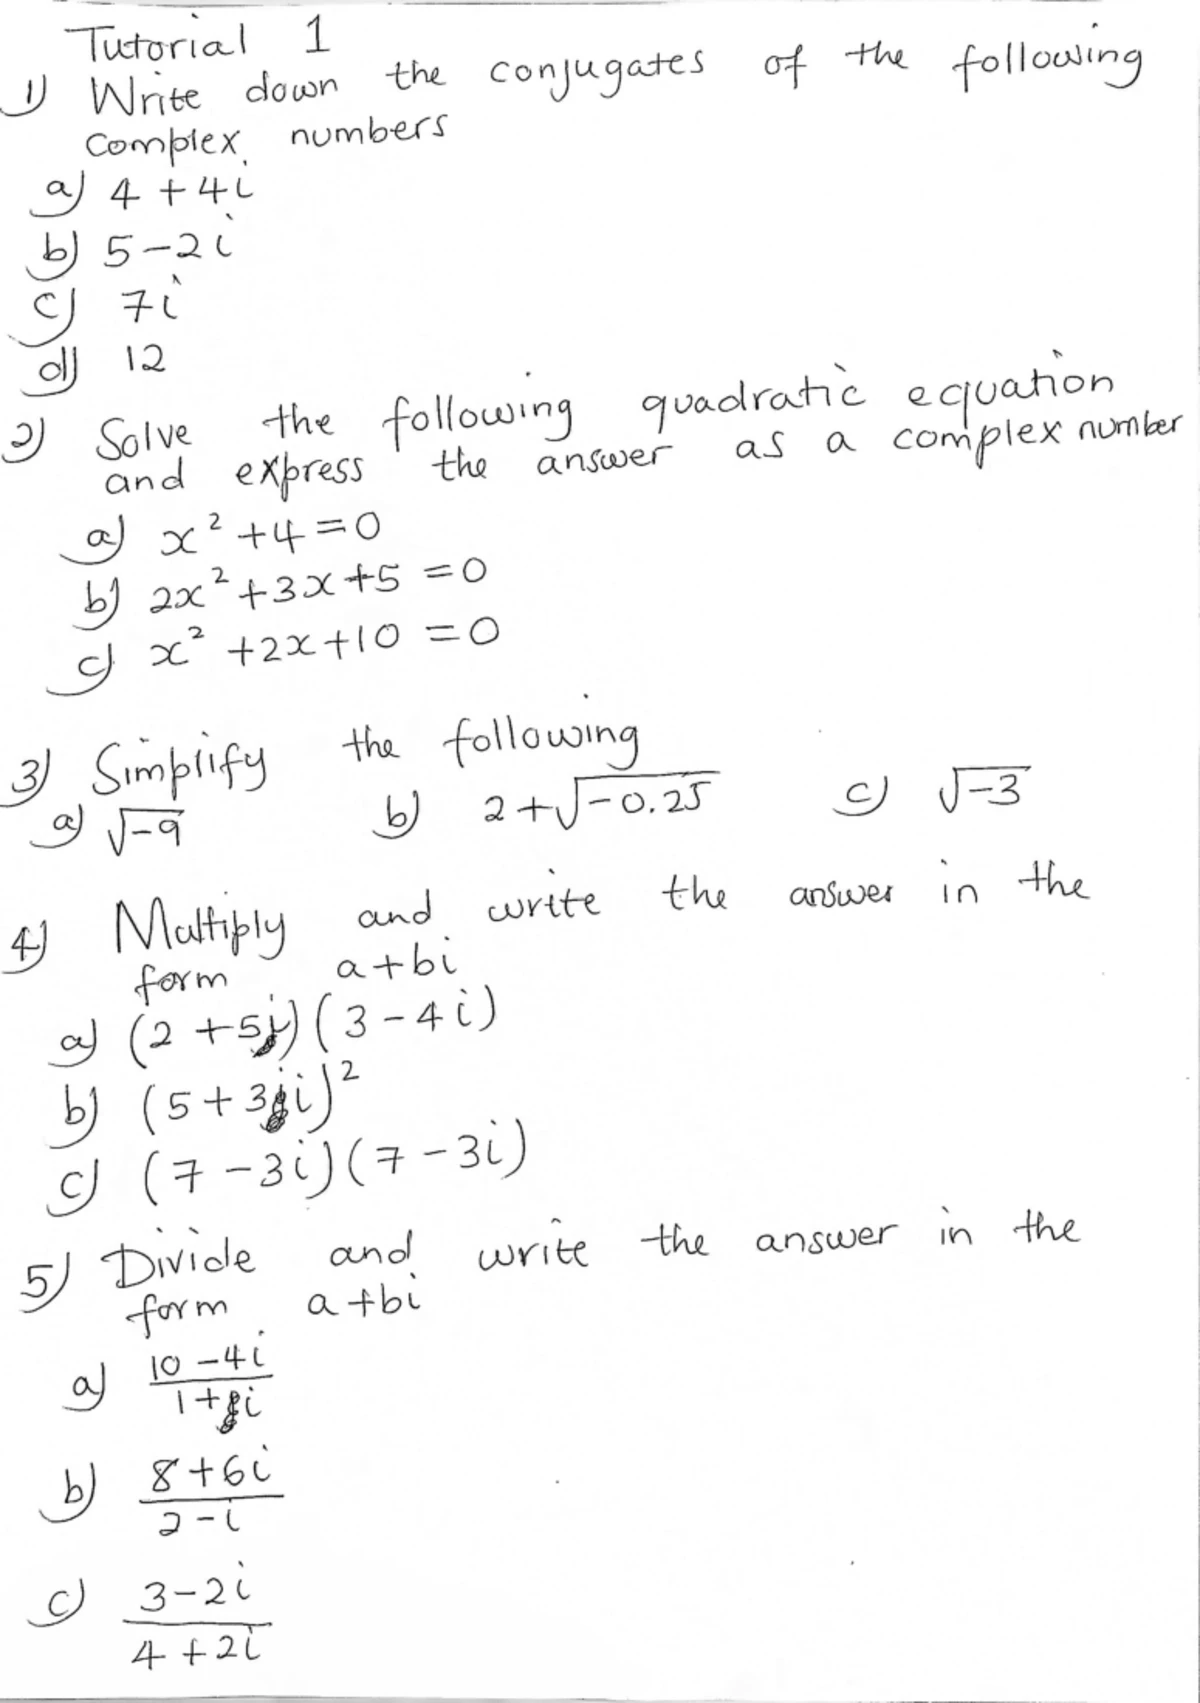 Tutorial 1
1) Write down the conjugates of the following
complex numbers
a) 4 + 4i
b) 5 - 2i
c) 7i
d) 12
2) Solve the following quadratic equation
and express the answer as a complex number
a) x² + 4 = 0
b) 2x² + 3x + 5 = 0
c) x² + 2x + 10 = 0
3) Simplify the following
a) √-9 b) 2 + √-0.25 c) √-3
4) Multiply and write the answer in the
form a + bi
a) (2 + 5i)(3 - 4i)
b) (5 + 3i)²
c) (7 - 3i)(7 - 3i)
5) Divide and write the answer in the
form a + bi
a) 10 - 4i
1 + i
b) 8 + 6i
2 - i
c) 3 - 2i
4 + 2i